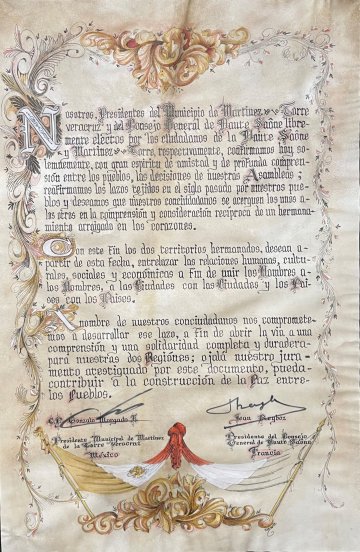 Nosotros, Presidentes del Municipio de Martínez de la Torre
Veracruz y del Consejo General de Haute Saône libre-
mente electos por los ciudadanos de la Haute Saône
y Martínez de la Torre, respectivamente, reafirmamos hoy so-
lemnemente, con gran espíritu de amistad y de profunda compren-
sión entre los pueblos, las decisiones de nuestras Asambleas;
reafirmamos los lazos tejidos en el siglo pasado por nuestros pue-
blos y deseamos que nuestros conciudadanos se acerquen los unos a
los otros en la comprensión y consideración recíproca de un hermana-
miento arraigado en los corazones.
Con este Fin los dos territorios hermanados, desean a
partir de esta fecha, entrelazar las relaciones humanas, cultu-
rales, sociales y económicos a Fin de unir los Hombres a
los Hombres, a las Ciudades con las Ciudades y los Paí-
ses con los Países.
A nombre de nuestros conciudadanos nos compromete-
mos a desarrollar ese lazo, a fin de abrir la vía a una
comprensión y una solidaridad completa y duradera
para nuestras dos Regiones; ojalá nuestro jura-
mento atestiguado por este documento, pueda
contribuir a la construcción de la Paz entre
los Pueblos.
Gonzalo Morgado H. Jean
Presidente Municipal de Martínez Presidente del Consejo
de la Torre Veracruz General de Haute Saône
México Francia